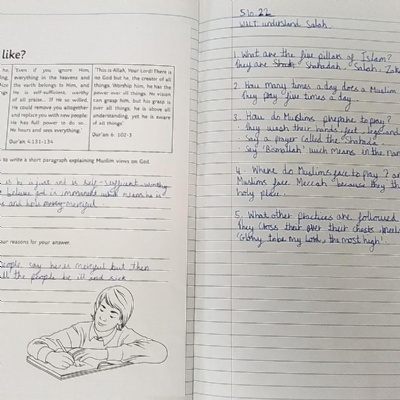 like?
he,
ding,
Not
ngs
'Even if you ignore Him,
everything in the heavens and
the earth belongs to Him, and
He is self-sufficient, worthy
of all praise. If He so willed,
He could remove you altogether
and replace you with new people:
He has full power to do so...
He hears and sees everything.'
Qur'an 4:131-134
'This is Allah, Your Lord! There is
no God but he, the creator of all
things. Worship him; he has the
power over all things. No vision
can grasp him, but his grasp is
over all vision; he is above all
understanding, yet he is aware
of all things'
Qur'an 6: 102-3
to write a short paragraph explaining Muslim views on God
is be a just and is self-sufficient worthy
believe in immanence which means he is
and merciful
our reasons for your answer.
people say he is merciful but then
all the people be ill and sick
5.10.22
WALT understand Salah
1. What are the five pillars of Islam?
They are shahadah, Salah, Zak
2. How many times a day does a Muslim
They pray five times a day
3. How do Muslims prepare to pray?
• They wash their hands, feet, legs and
• Say a prayer called the Shahada
• Say 'Bismallah' wich means in the nam
4. Where do Muslims face to pray?
Muslims face Meccah because they th
holy place.
5. What other practices are followed
They cross their over their chests
'Glory to be my Lord, the most high'.